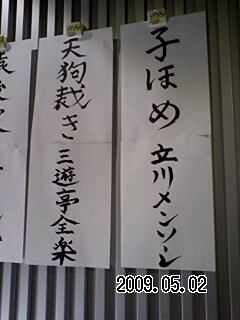 子ほめ 立川メンソーレ
天狗裁き 三遊亭全楽
2009.05.02